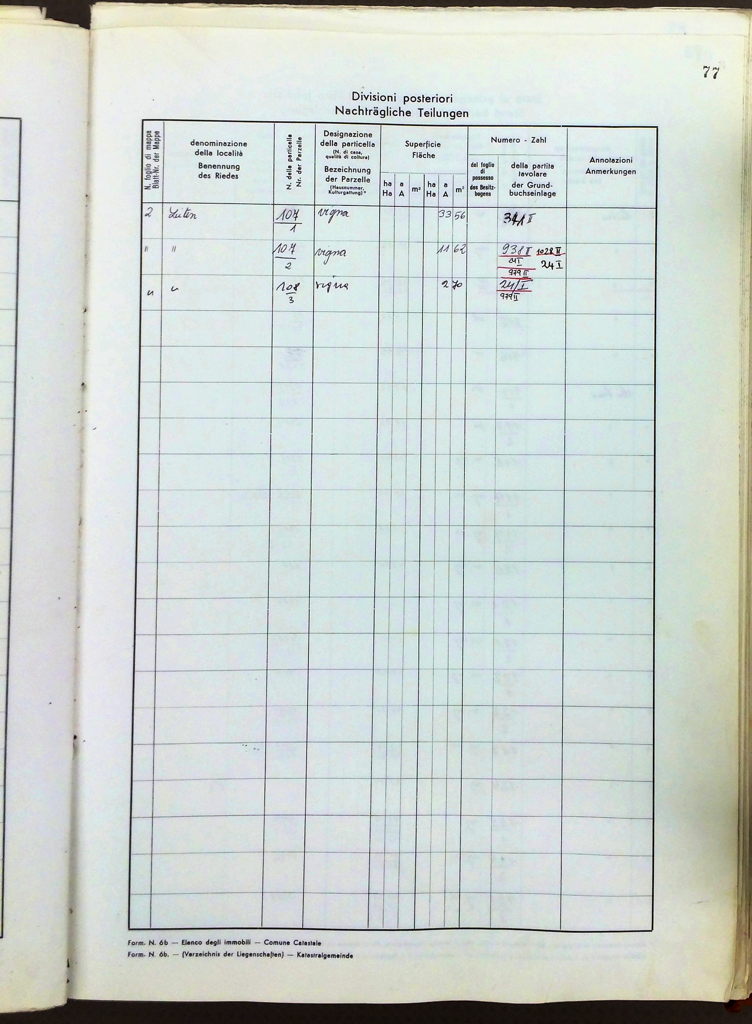 77
Divisioni posteriori
Nachträgliche Teilungen
N. foglio di mappa
Blatt-Nr. der Mappe
denominazione
della località
Benennung
des Riedes
N. della particella
Nr. der Parzelle
Designazione
della particella
(N. di casa,
qualità di coltura)
Bezeichnung
der Parzelle
(Hausnummer,
Kulturgattung)
Superficie
Fläche
ha a m² ha a m²
Ha A Ha A
Numero - Zahl
del foglio
di
possesso
des Besitz-
bogens
della partita
tavolare
der Grund-
buchseinlage
Annotazioni
Anmerkungen
2 107/1 vigna 33 56 II
" " 107/2 vigna 11 62 938 II 1028 II
24 I
979 II
" " /3 vigna 2 70 24/I
979 II
Form. N. 6b — Elenco degli immobili — Comune Catastale
Form. N. 6b. — (Verzeichnis der Liegenschaften) — Katastralgemeinde